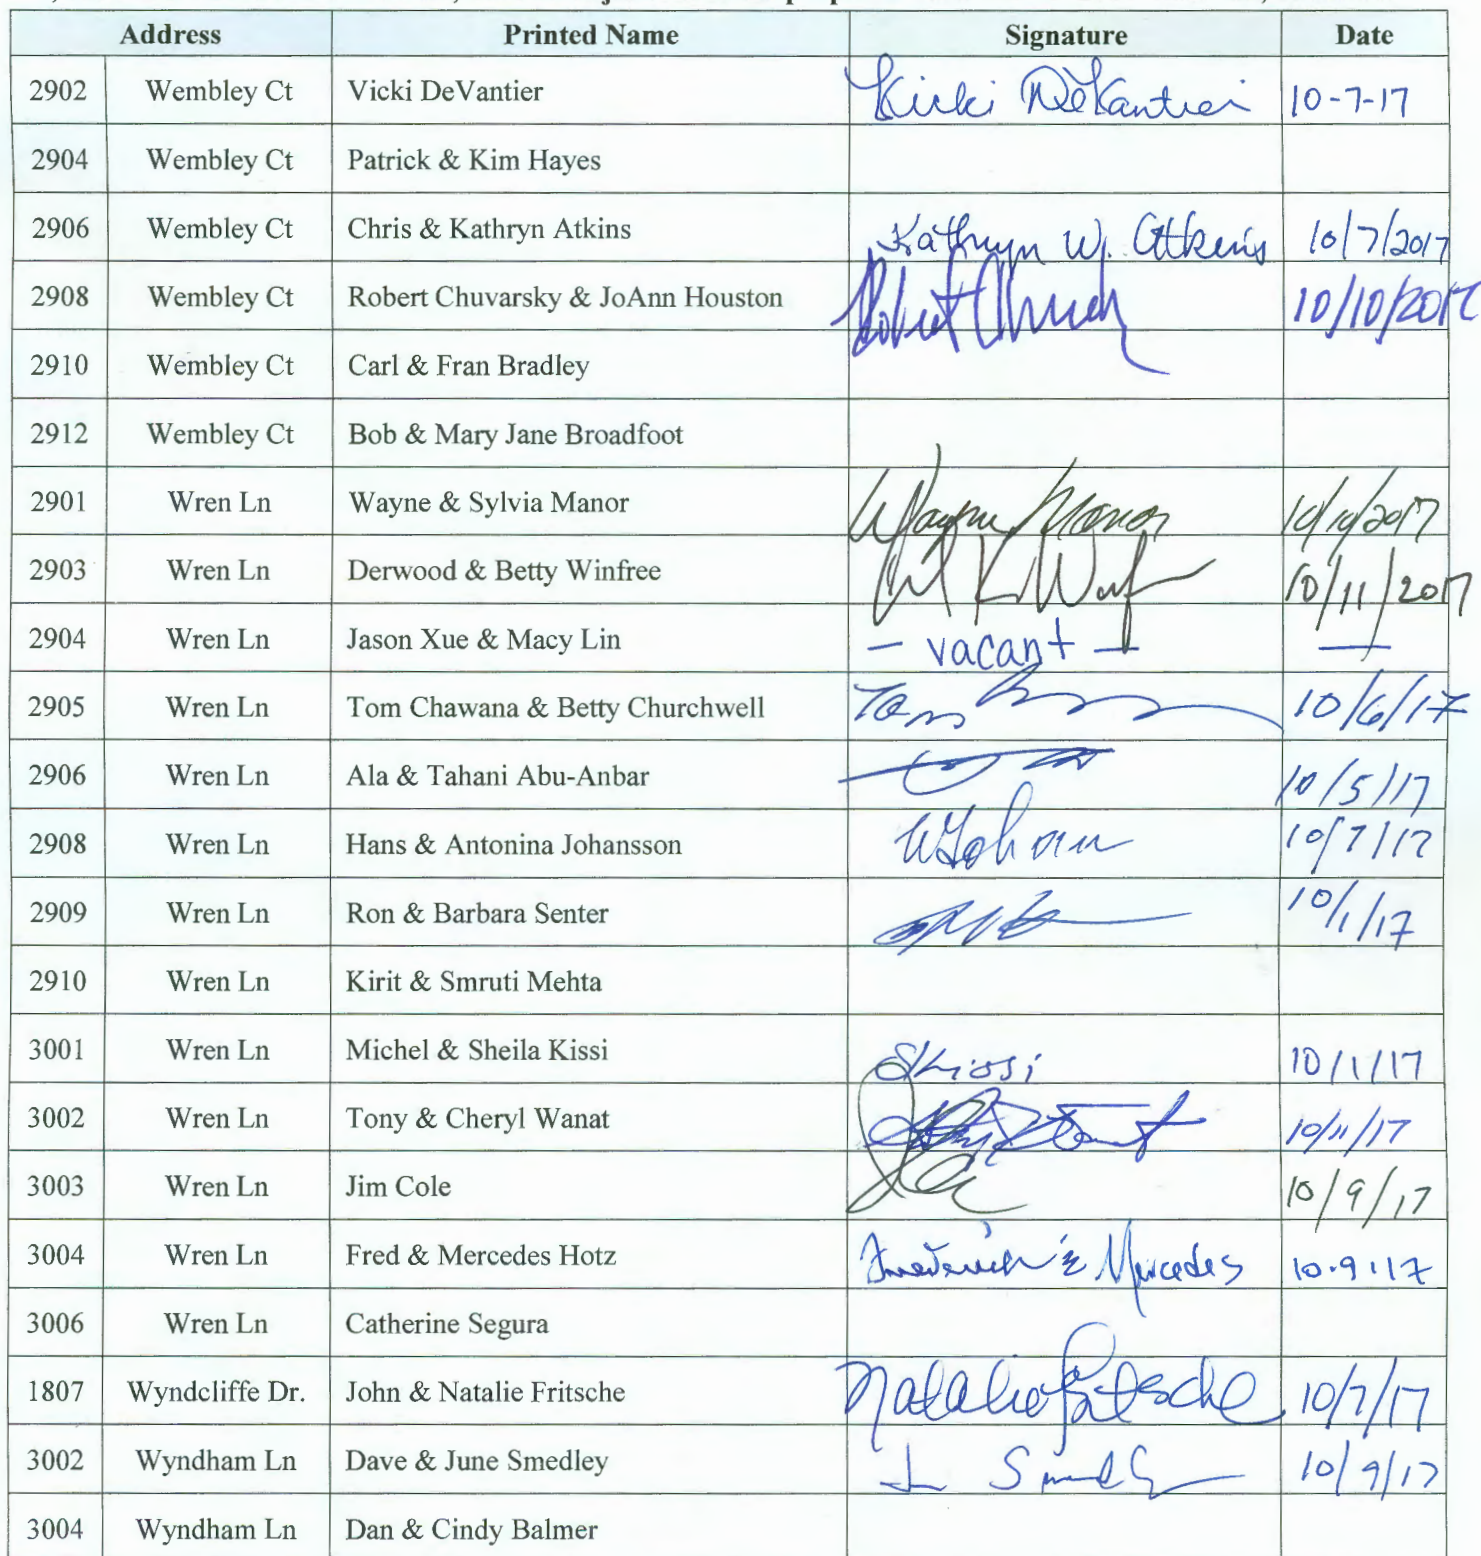 Address Printed Name Signature Date
2902 Wembley Ct Vicki DeVantier Vicki DeVantier 10-7-17
2904 Wembley Ct Patrick & Kim Hayes
2906 Wembley Ct Chris & Kathryn Atkins Kathryn W. Atkins 10/7/2017
2908 Wembley Ct Robert Chuvarsky & JoAnn Houston Robert 10/10/2017
2910 Wembley Ct Carl & Fran Bradley
2912 Wembley Ct Bob & Mary Jane Broadfoot
2901 Wren Ln Wayne & Sylvia Manor Wayne Manor 10/10/2017
2903 Wren Ln Derwood & Betty Winfree 10/11/2017
2904 Wren Ln Jason Xue & Macy Lin – vacant – —
2905 Wren Ln Tom Chawana & Betty Churchwell Tom 10/6/17
2906 Wren Ln Ala & Tahani Abu-Anbar 10/5/17
2908 Wren Ln Hans & Antonina Johansson 10/7/17
2909 Wren Ln Ron & Barbara Senter 10/1/17
2910 Wren Ln Kirit & Smruti Mehta
3001 Wren Ln Michel & Sheila Kissi SKissi 10/1/17
3002 Wren Ln Tony & Cheryl Wanat 10/11/17
3003 Wren Ln Jim Cole 10/9/17
3004 Wren Ln Fred & Mercedes Hotz Frederick & Mercedes 10.9.17
3006 Wren Ln Catherine Segura
1807 Wyndcliffe Dr. John & Natalie Fritsche Natalie Fritsche 10/7/17
3002 Wyndham Ln Dave & June Smedley 10/9/17
3004 Wyndham Ln Dan & Cindy Balmer